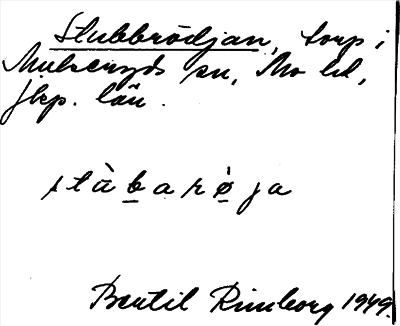 Stubbrödjan, torp i
Mulseryds sn, Mo hd,
Jkp. län.
stàbarója
Bertil Rimborg 1949.